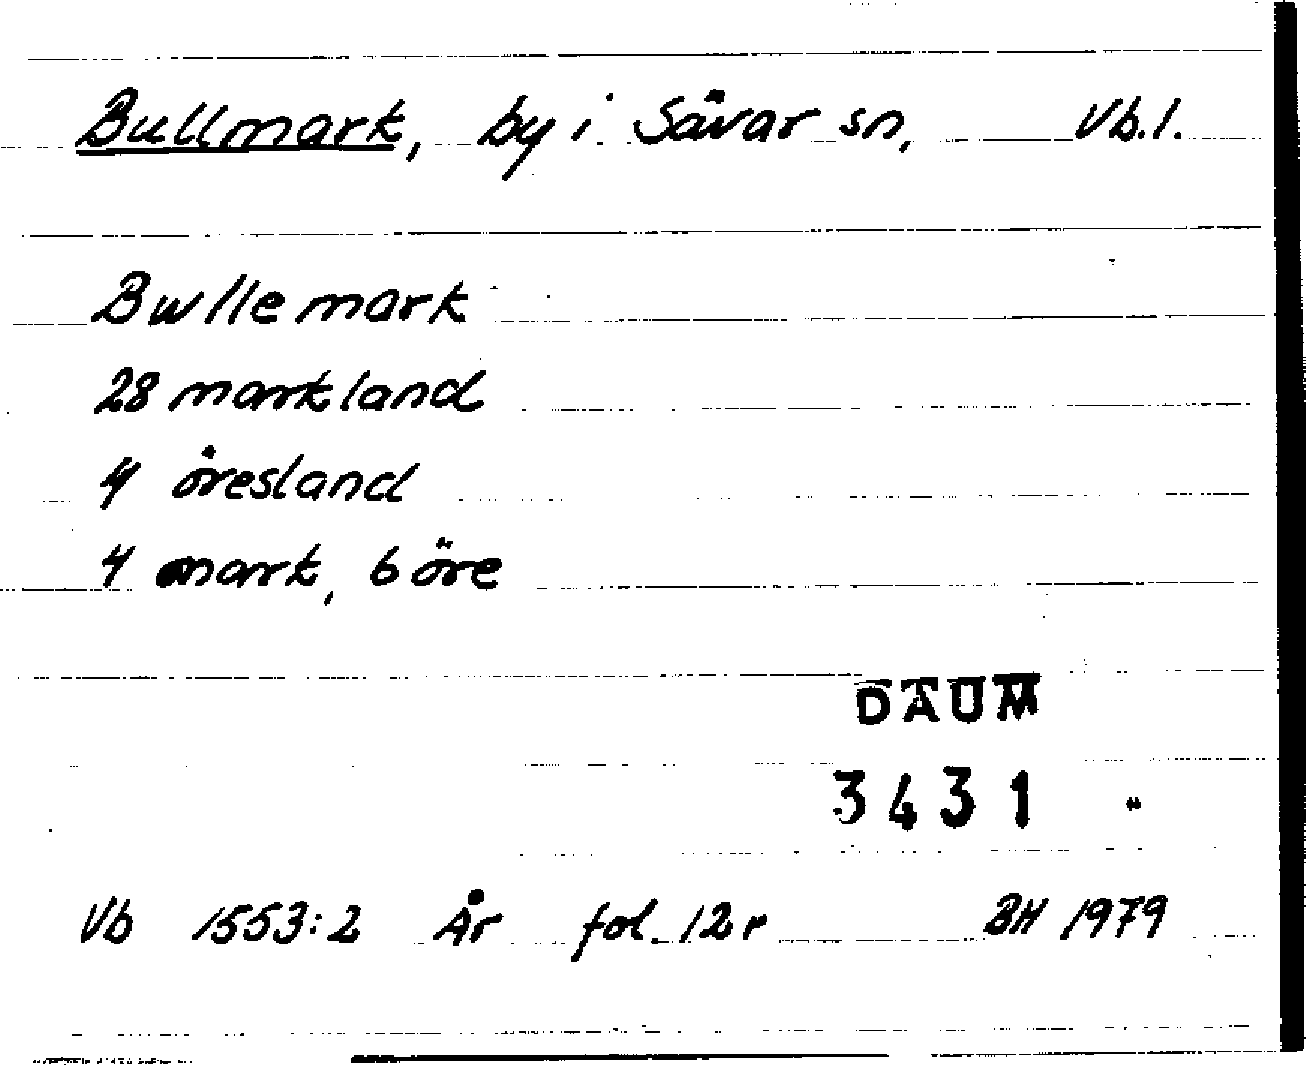 Bullmark, by i Sävar sn, Vb.l.
Bwllemark
28 markland
4 öresland
4 mark, 6 öre
DAUM
3431
Vb 1553:2 År fol. 12r BH 1979